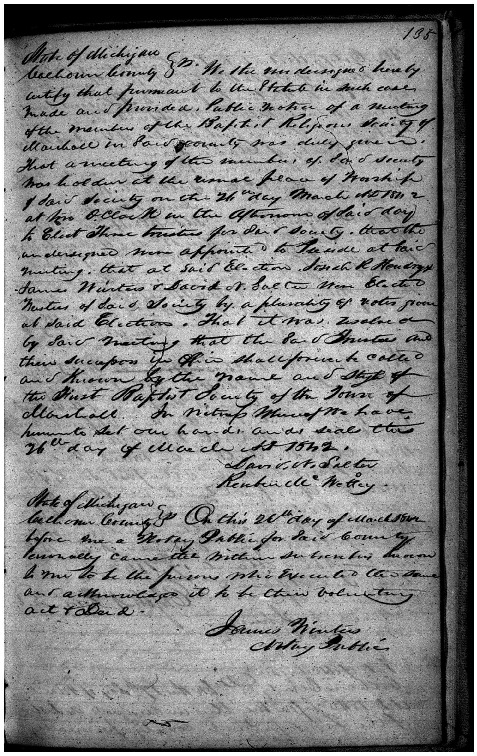 138
State of Michigan
Calhoun County } ss. We the undersigned hereby
certify that pursuant to the Statute in such case
made and provided. Public notice of a meeting
of the members of the Baptist Religious Society of
Marshall in Said County was duly given.
That a meeting of the members of Said Society
was holden at the usual place of Worship
of Said Society on the 26th day March AD 1842
at two O Clock in the Afternoon of Said day
to Elect Three trustees for Said Society. that the
undersigned were appointed to Preside at Said
meeting. that at Said Election Joseph R
James Winters & David N. Salter were Elected
Trustees of Said Society by a plurality of votes given
at Said Election. That it was resolved
by Said meeting that the Said Trustees and
their successors in Office shall forever be called
and known by the name and style of
the First Baptist Society of the Town of
Marshall. In Witness Whereof We have
hereunto set our hands and seals this
26th day of March AD 1842.
David N Salter
Reuben
State of Michigan
Calhoun County } ss On this 26th day of March 1842
before me a Notary Public for Said County
Personally came the within subscribers known
to me to be the persons who Executed the same
and acknowledged it to be their voluntary
act & Deed.
James Winters
Notary Public